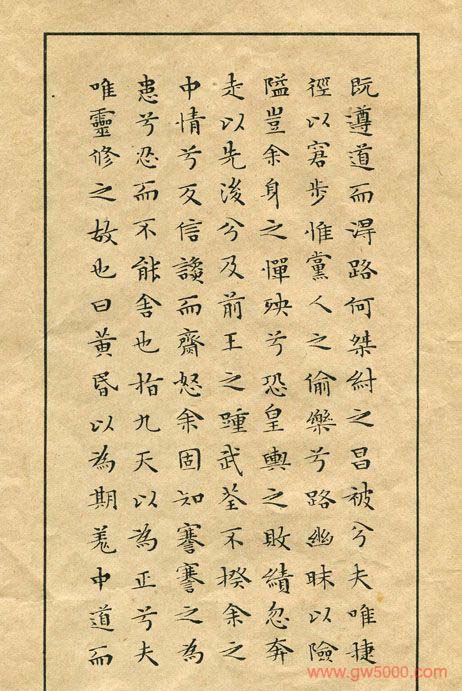 既遵道而得路何桀紂之昌被兮夫唯捷
徑以窘步惟黨人之偷樂兮路幽昧以險
隘豈余身之憚殃兮恐皇輿之敗績忽奔
走以先後兮及前王之踵武荃不揆余之
中情兮反信讒而齋怒余固知謇謇之為
患兮忍而不能舍也指九天以為正兮夫
唯靈修之故也曰黃昏以為期羌中道而
www.gw5000.com